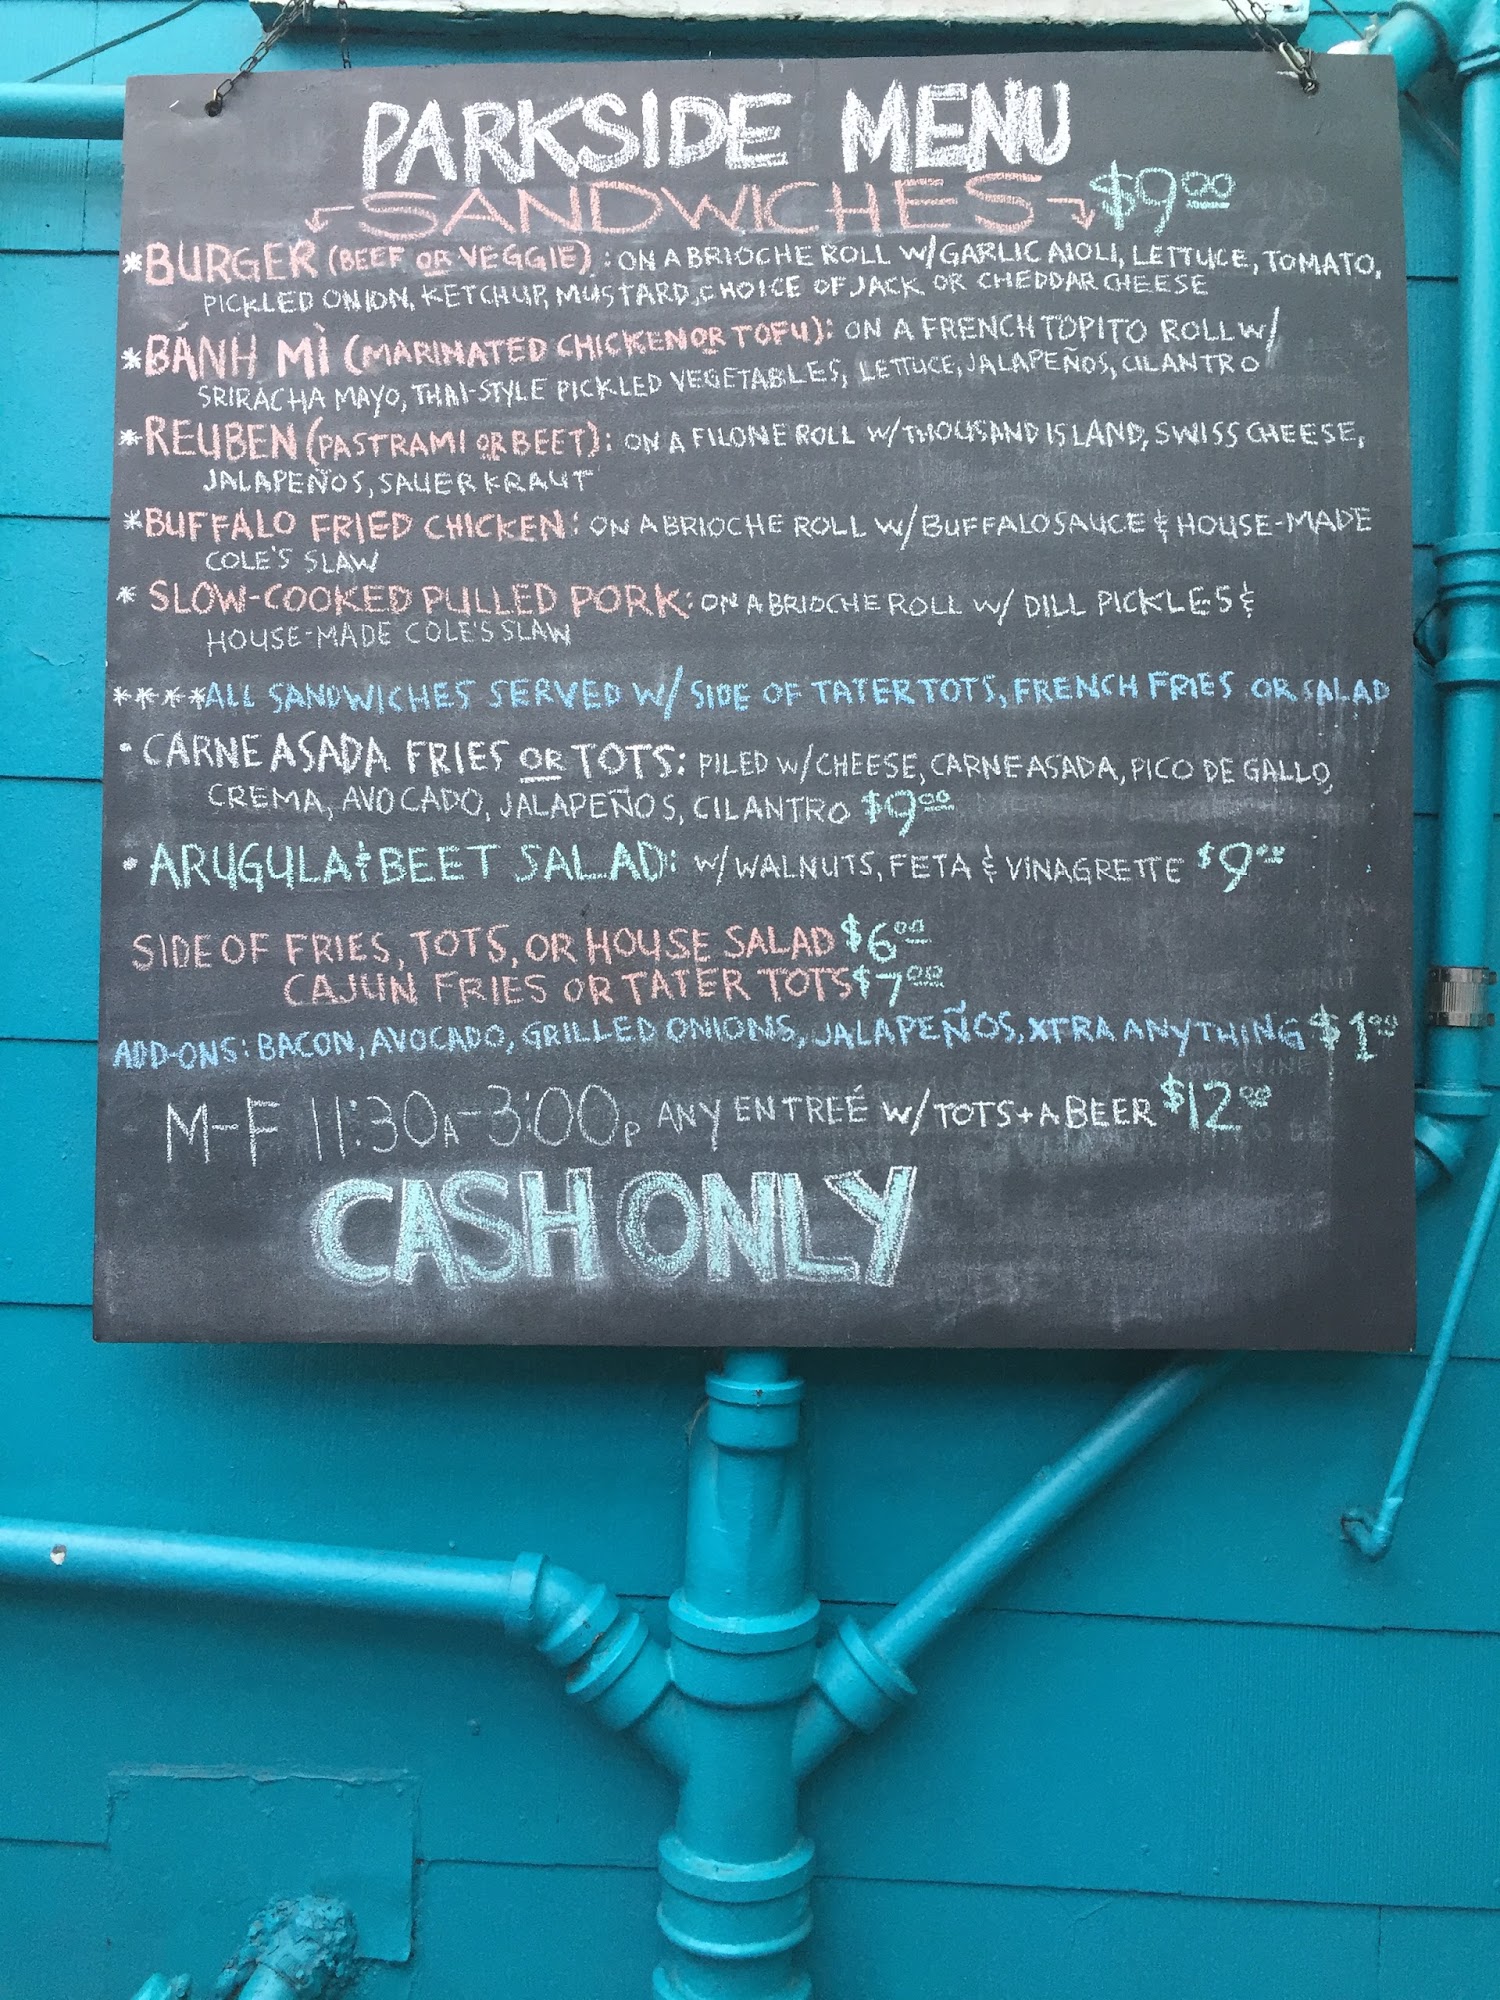 PARKSIDE MENU
SANDWICHES $9.00
*BURGER (BEEF OR VEGGIE): ON A BRIOCHE ROLL W/GARLIC AIOLI, LETTUCE, TOMATO,
PICKLED ONION, KETCHUP, MUSTARD, CHOICE OF JACK OR CHEDDAR CHEESE
*BÁNH MÌ (MARINATED CHICKEN OR TOFU): ON A FRENCH TOPITO ROLL W/
SRIRACHA MAYO, THAI-STYLE PICKLED VEGETABLES, LETTUCE, JALAPEÑOS, CILANTRO
*REUBEN (PASTRAMI OR BEET): ON A FILONE ROLL W/THOUSAND ISLAND, SWISS CHEESE,
JALAPEÑOS, SAUERKRAUT
*BUFFALO FRIED CHICKEN: ON A BRIOCHE ROLL W/BUFFALO SAUCE & HOUSE-MADE
COLE'S SLAW
* SLOW-COOKED PULLED PORK: ON A BRIOCHE ROLL W/ DILL PICKLES &
HOUSE-MADE COLE'S SLAW
****ALL SANDWICHES SERVED W/ SIDE OF TATERTOTS, FRENCH FRIES OR SALAD
• CARNE ASADA FRIES OR TOTS: PILED W/CHEESE, CARNE ASADA, PICO DE GALLO,
CREMA, AVOCADO, JALAPEÑOS, CILANTRO $9.00
• ARUGULA & BEET SALAD: W/WALNUTS, FETA & VINAGRETTE $9.00
SIDE OF FRIES, TOTS, OR HOUSE SALAD $6.00
CAJUN FRIES OR TATER TOTS $7.00
ADD-ONS: BACON, AVOCADO, GRILLED ONIONS, JALAPEÑOS, XTRA ANYTHING $1.00
M-F 11:30A-3:00P ANY ENTREÉ W/TOTS+A BEER $12.00
CASH ONLY